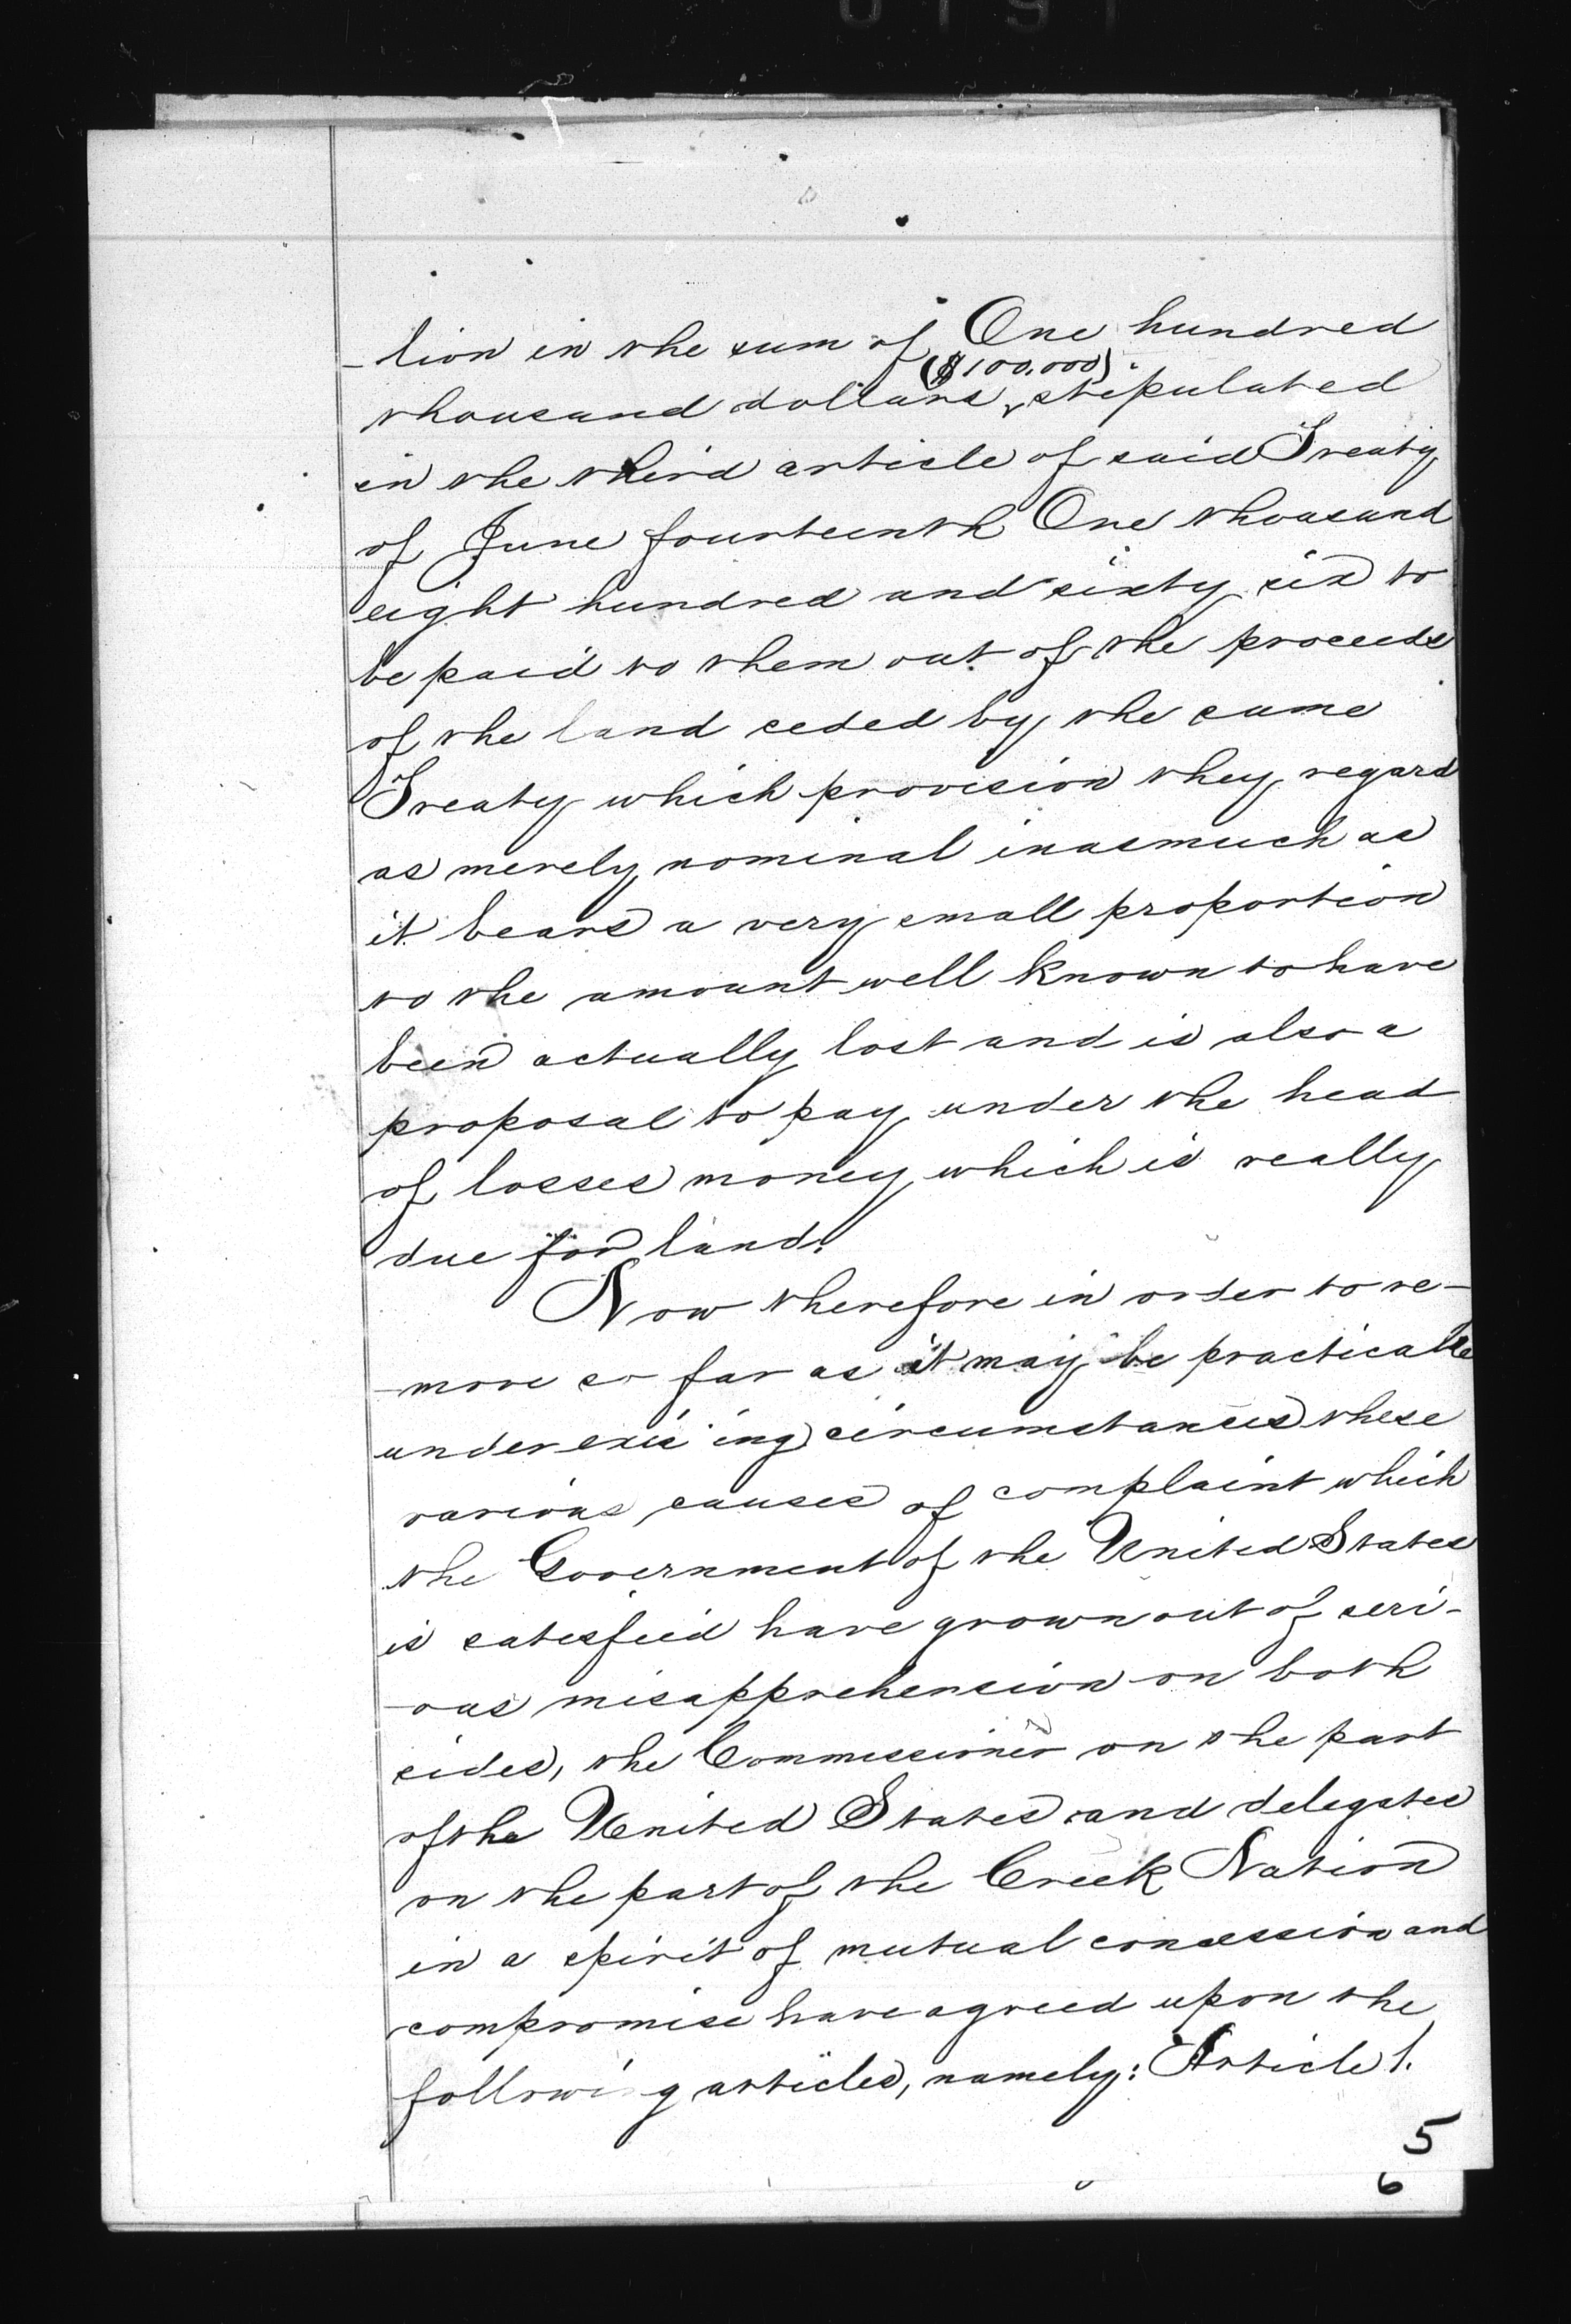 -tion in the sum of One hundred
thousand dollars ($100.000) stipulated
in the third article of said Treaty
of June fourteenth One thousand
eight hundred and sixty six to
be paid to them out of the proceeds
of the land ceded by the same
Treaty which provision they regard
as merely nominal inasmuch as
it bears a very small proportion
to the amount well known to have
been actually lost and is also a
proposal to pay under the head
of losses money which is really
due for land.
Now therefore in order to re-
-move so far as it may be practicable
under exis ing circumstances these
various causes of complaint which
the Government of the United States
is satisfied have grown out of seri-
-ous misapprehension on both
sides, the Commissioner on the part
of the United States and delegates
on the part of the Creek Nation
in a spirit of mutual concession and
compromise have agreed upon the
followi g articles, namely: Article 1.
5
6